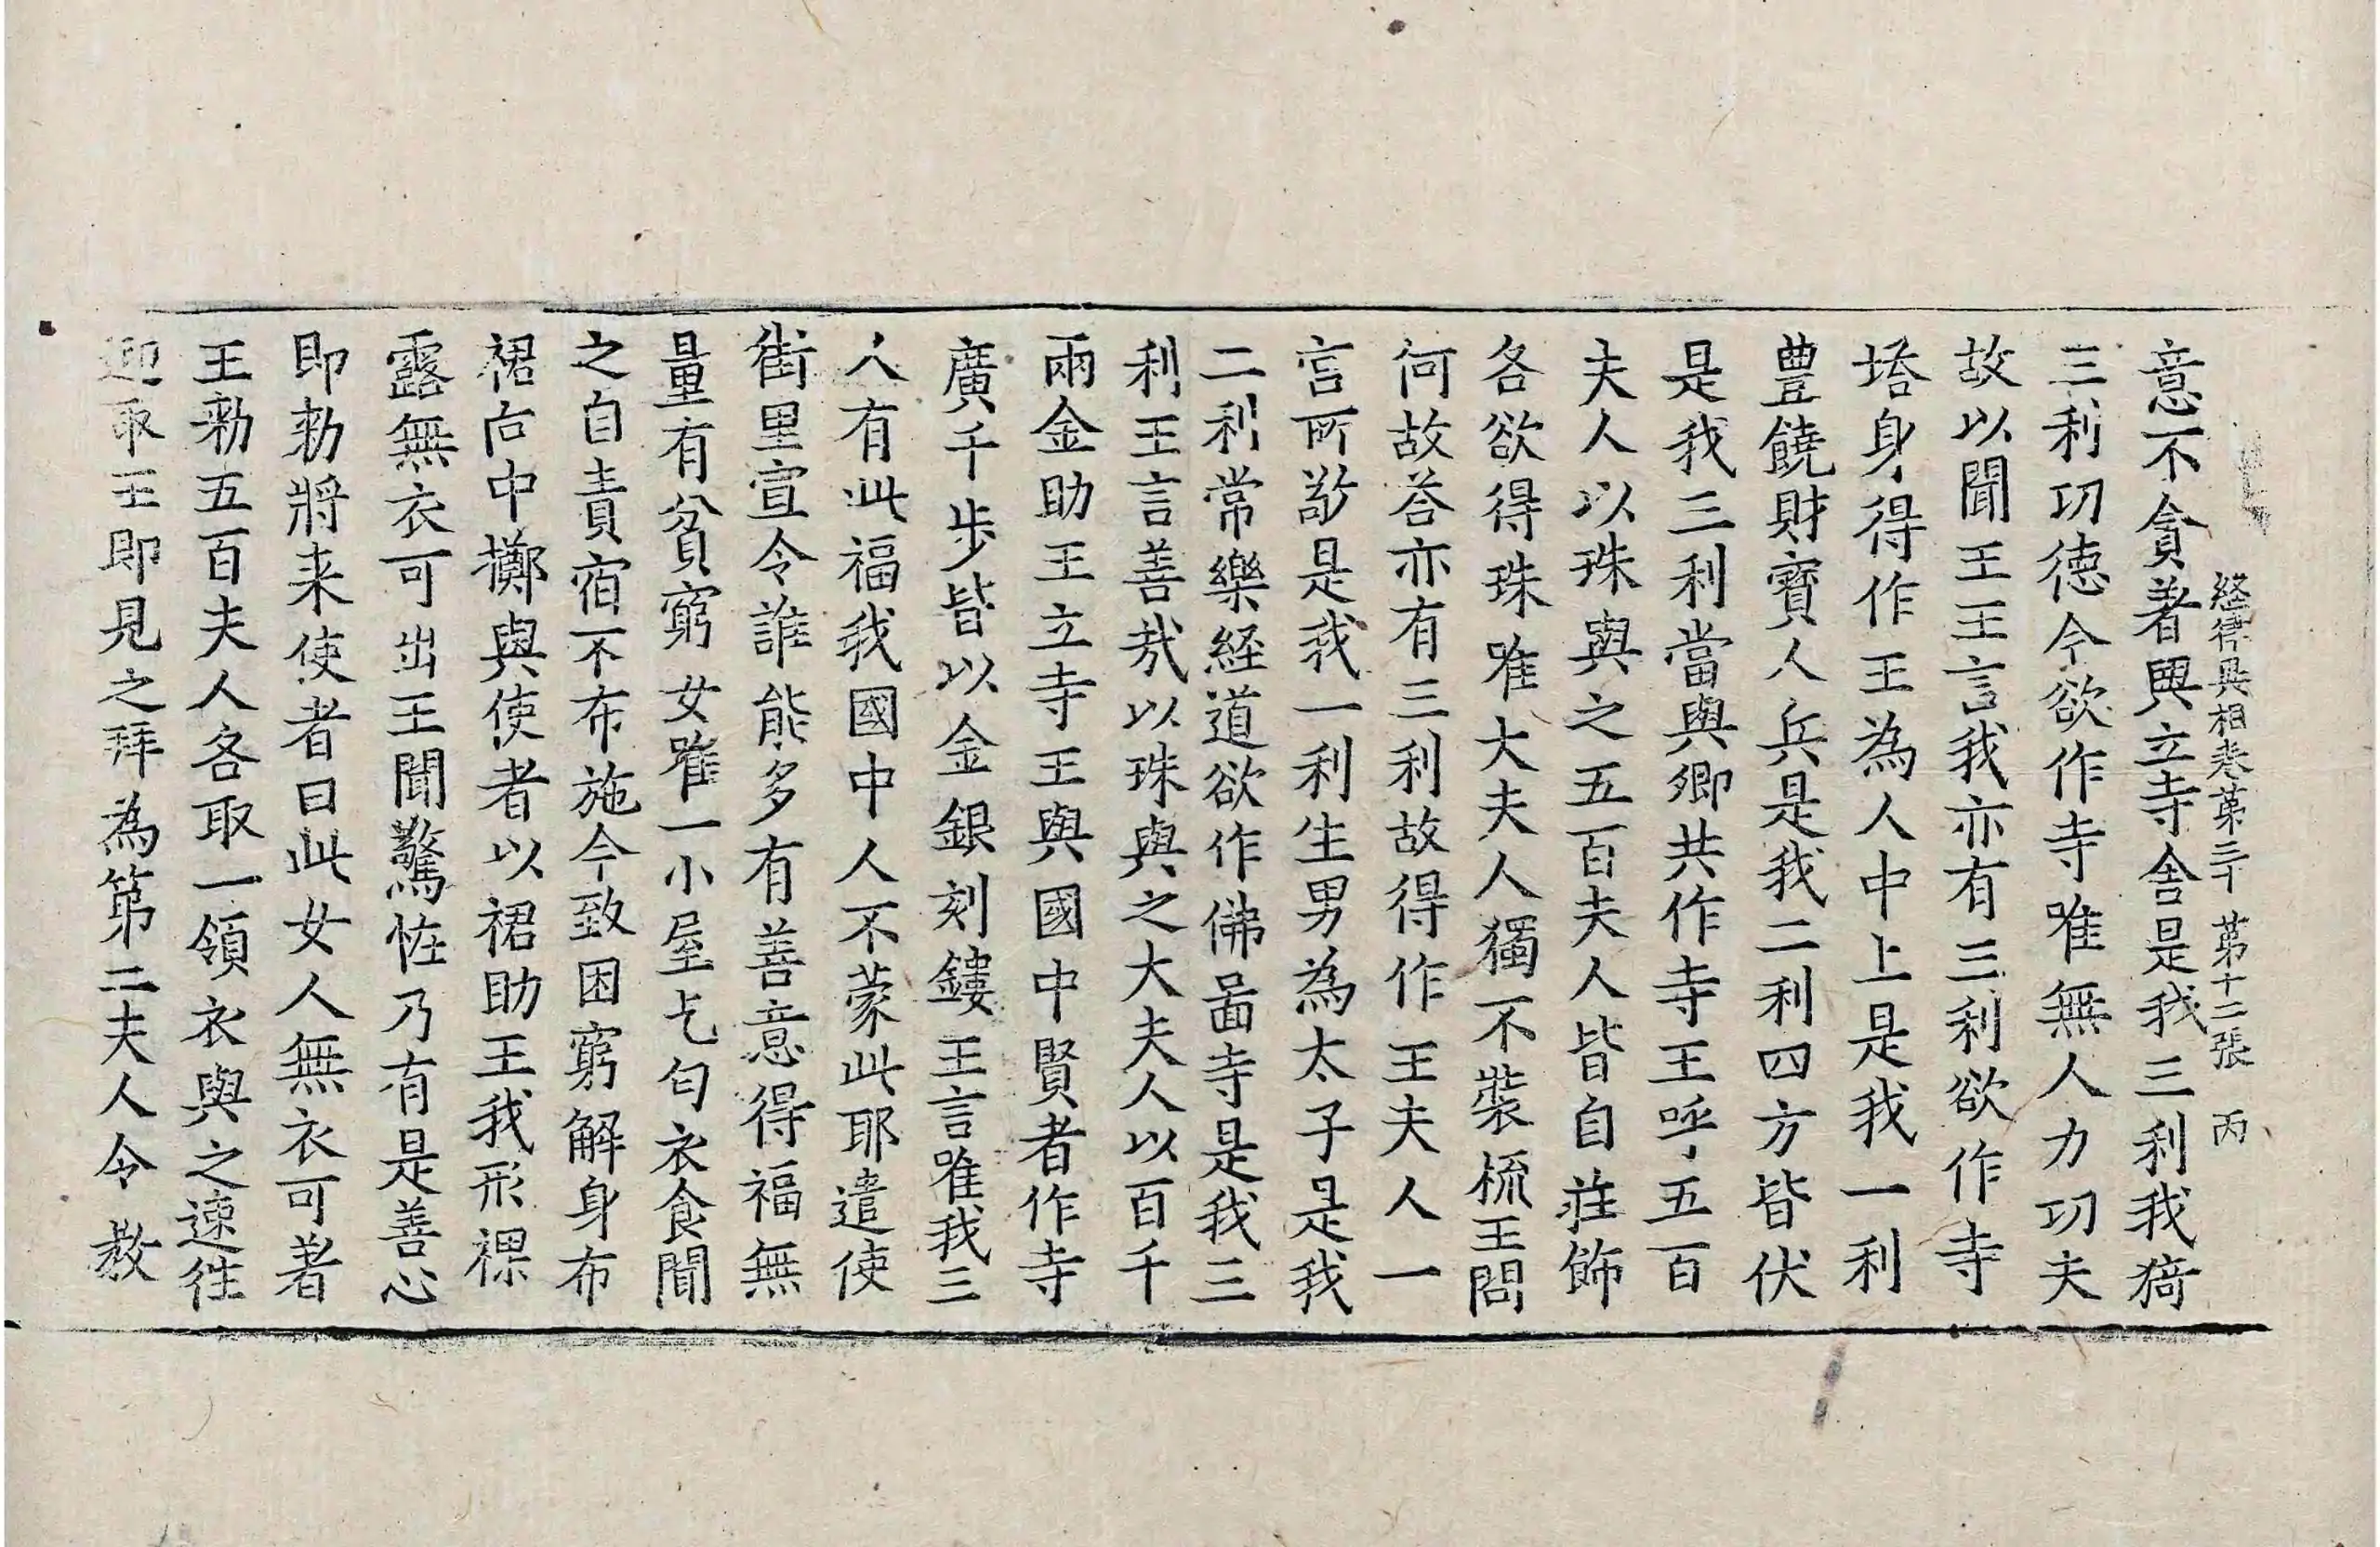 經律異相卷第三十 第十二張 丙
意不貪著興立寺舍是我三利我猗
三利功德今欲作寺唯無人力功夫
故以聞王王言我亦有三利欲作寺
塔身得作王為人中上是我一利
豊饒財寶人兵是我二利四方皆伏
是我三利當與卿共作寺王呼五百
夫人以珠與之五百夫人皆自莊飾
各欲得珠唯大夫人獨不裝梳王問
何故荅亦有三利故得作王夫人一
言所敬是我一利生男為太子是我
二利常樂經道欲作佛啚寺是我三
利王言善哉以珠與之大夫人以百千
兩金助王立寺王與國中賢者作寺
廣千步皆以金銀刻鏤王言唯我三
人有此福我國中人不蒙此耶遣使
街里宣令誰能多有善意得福無
量有貧窮女唯一小屋乞匄衣食聞
之自責宿不布施今致困窮解身布
裙向中擲與使者以裙助王我形裸
露無衣可出王聞驚恠乃有是善心
即勑將来使者曰此女人無衣可著
王勑五百夫人各取一領衣與之速往
迎取王即見之拜為第二夫人令教